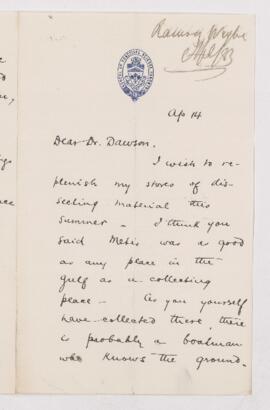 Ramsay Wright
Ap 14
Dear Dr. Dawson.
I wish to re-
plenish my stores of dis-
secting material this
summer - I think you
said Metis was as good
as any place in the
gulf as a collecting
place - As you yourself
have collected there, there
is probably a boatman
who knows the ground.